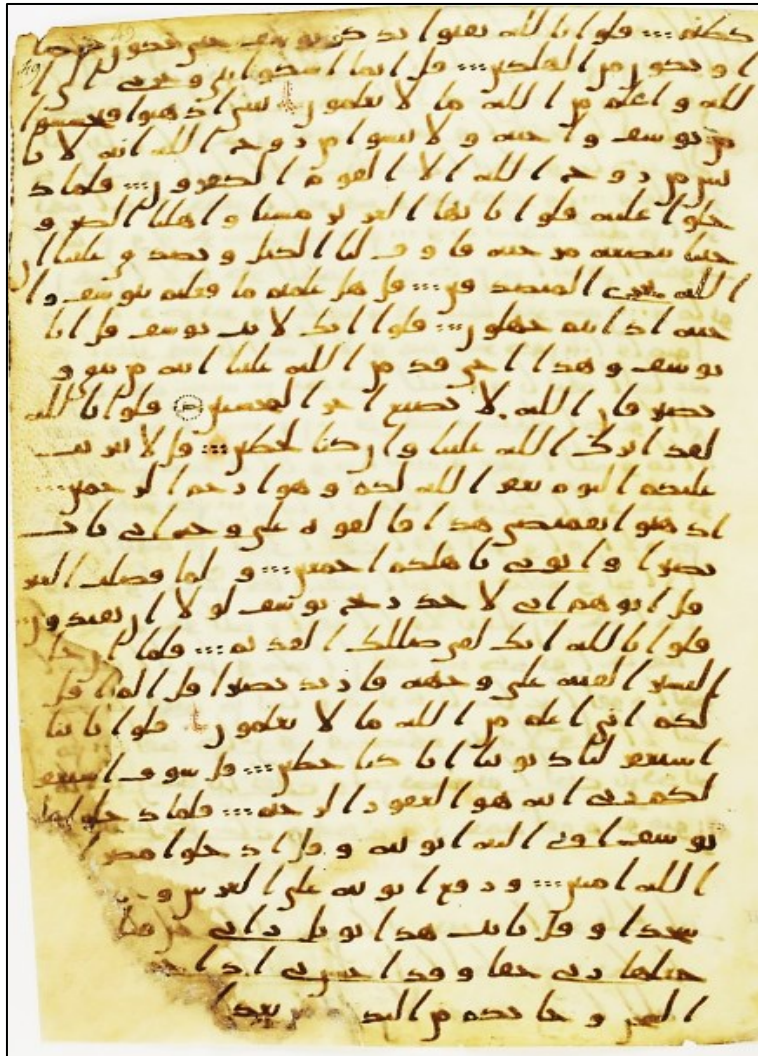 كظيم قلوا تالله تفتوا تذكر يوسف حتى تكون حرضا
او تكون من الهلكين قل انما اشكوا بثي وحزني الى ا
لله واعلم من الله ما لا تعلمون يبني اذهبوا فتحسسوا
من يوسف واخيه ولا تيسوا من روح الله انه لا يا
يس من روح الله الا القوم الكفرون فلما د
خلوا عليه قلوا يايها العزيز مسنا واهلنا الضر و
جينا ببضعة مزجية فاوف لنا الكيل وتصدق علينا ا
ن الله يجزي المتصدقين قل هل علمتم ما فعلتم بيوسف وا
خيه اذ انتم جهلون قلوا انك لانت يوسف قل انا
يوسف وهذا اخي قد من الله علينا انه من يتق و
يصبر فان الله لا يضيع اجر المحسنين قلوا تالله
لقد اثرك الله علينا وان كنا لخطين قل لا تثريب
عليكم اليوم يغفر الله لكم وهو ارحم الرحمين
اذهبوا بقميصي هذا فالقوه على وجه ابي يات
بصيرا واتوني باهلكم اجمعين ولما فصلت العير
قل ابوهم اني لاجد ريح يوسف لولا ان تفندون
قلوا تالله انك لفي ضللك القديم فلما ان جا
البشير القيه على وجهه فارتد بصيرا قل الم اقل
لكم اني اعلم من الله ما لا تعلمون قلوا يابنا
استغفر لنا ذنوبنا انا كنا خطين قل سوف استغفر
لكم ربي انه هو الغفور الرحيم فلما دخلوا على
يوسف اوى اليه ابويه وقل ادخلوا مصر
الله امنين ورفع ابويه على العرش و
سجدا وقل يابت هذا تويل من قبل
جعلها ربي حقا وقد احسن بي اذ
السجن وجا بكم من البدو من بعد ا